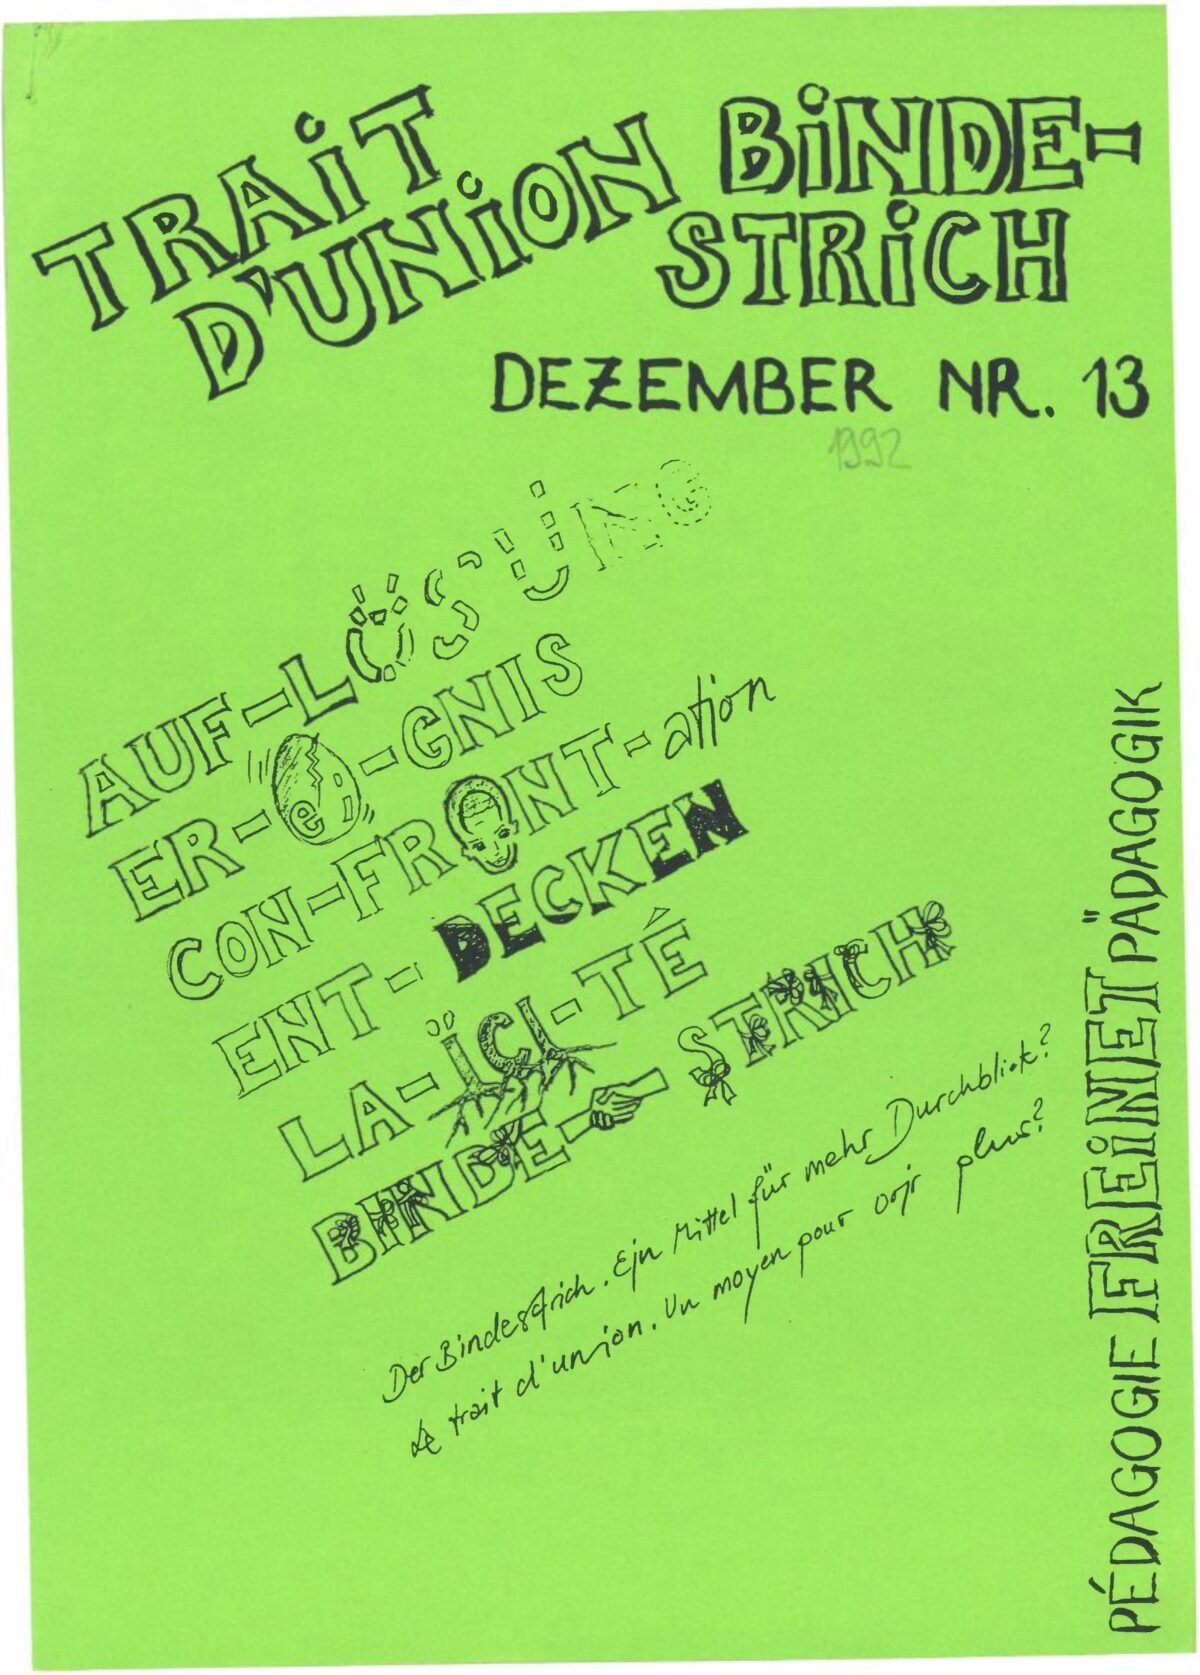 TRAiT
D'UNiON
BiNDE-
STRiCH
DEZEMBER NR. 13
1992
AUF-LÖSUNG
ER-ei-GNIS
CON-FRONT-ation
ENT-DECKEN
LA-ÏCI-TÉ
BINDE-STRICH
Der Bindestrich. Ein Mittel für mehr Durchblick?
Le trait d'union. Un moyen pour voir plus?
PÉDAGOGIE FREiNET PÄDAGOGIK